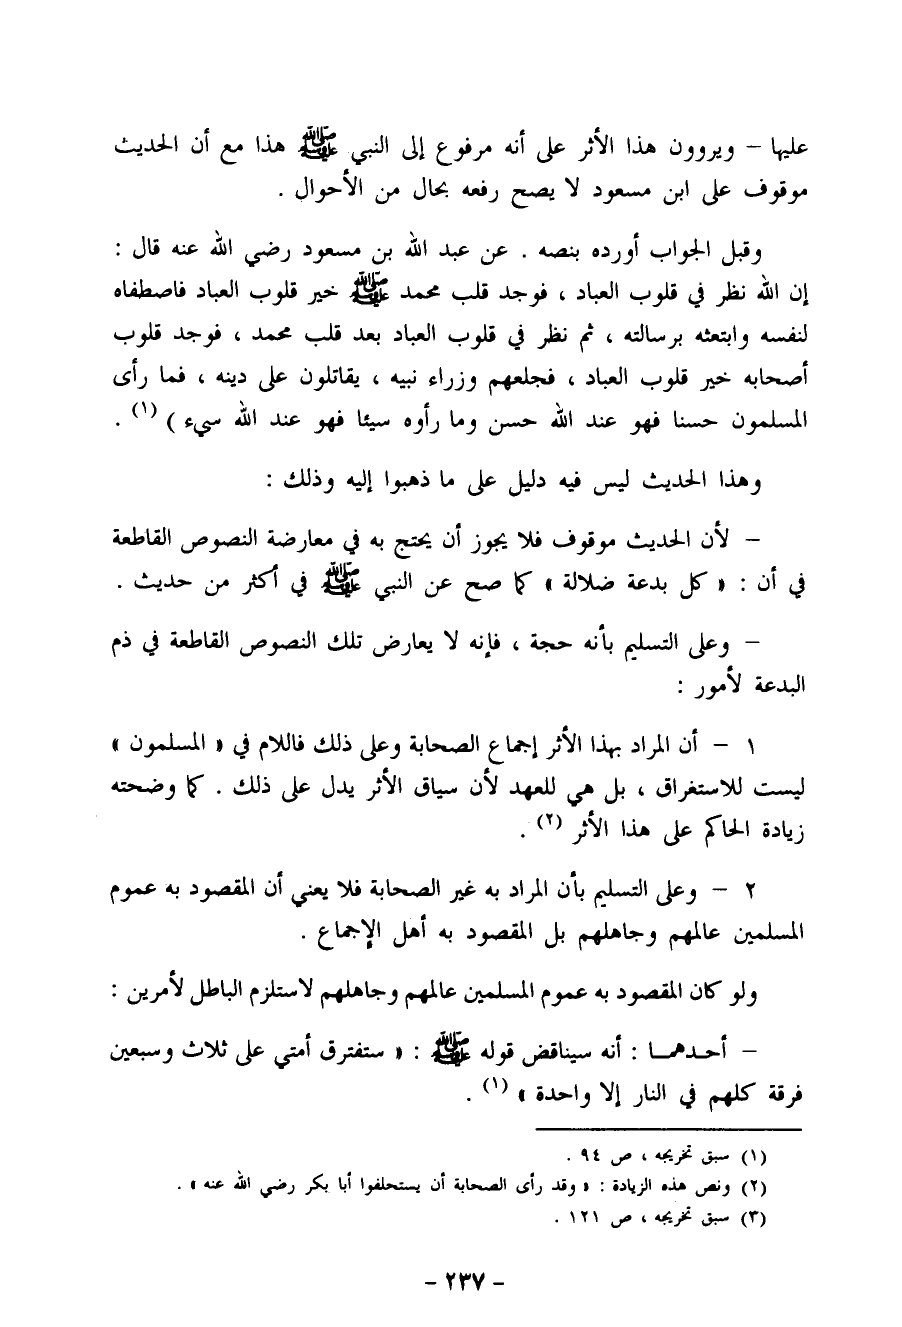 عليها – ويروون هذا الأثر على أنه مرفوع إلى النبي ﷺ هذا مع أن الحديث
موقوف على ابن مسعود لا يصح رفعه بحال من الأحوال .
وقبل الجواب أورده بنصه . عن عبد الله بن مسعود رضي الله عنه قال :
إن الله نظر في قلوب العباد ، فوجد قلب محمد ﷺ خير قلوب العباد فاصطفاه
لنفسه وابتعثه برسالته ، ثم نظر في قلوب العباد بعد قلب محمد ، فوجد قلوب
أصحابه خير قلوب العباد ، فجلعهم وزراء نبيه ، يقاتلون على دينه ، فما رأى
المسلمون حسنا فهو عند الله حسن وما رأوه سيئا فهو عند الله سيء ) (١) .
وهذا الحديث ليس فيه دليل على ما ذهبوا إليه وذلك :
– لأن الحديث موقوف فلا يجوز أن يحتج به في معارضة النصوص القاطعة
في أن : « كل بدعة ضلالة » كما صح عن النبي ﷺ في أكثر من حديث .
– وعلى التسليم بأنه حجة ، فإنه لا يعارض تلك النصوص القاطعة في ذم
البدعة لأمور :
١ – أن المراد بهذا الأثر إجماع الصحابة وعلى ذلك فاللام في « المسلمون »
ليست للاستغراق ، بل هي للعهد لأن سياق الأثر يدل على ذلك . كما وضحته
زيادة الحاكم على هذا الأثر (٢) .
٢ – وعلى التسليم بأن المراد به غير الصحابة فلا يعني أن المقصود به عموم
المسلمين عالمهم وجاهلهم بل المقصود به أهل الإجماع .
ولو كان المقصود به عموم المسلمين عالمهم وجاهلهم لاستلزم الباطل لأمرين :
– أحدهمـا : أنه سيناقض قوله ﷺ : « ستفترق أمتي على ثلاث وسبعين
فرقة كلهم في النار إلا واحدة » (١) .
(١) سبق تخريجه ، ص ٩٤ .
(٢) ونص هذه الزيادة : « وقد رأى الصحابة أن يستحلفوا أبا بكر رضي الله عنه » .
(٣) سبق تخريجه ، ص ١٢١ .
– ٢٣٧ –